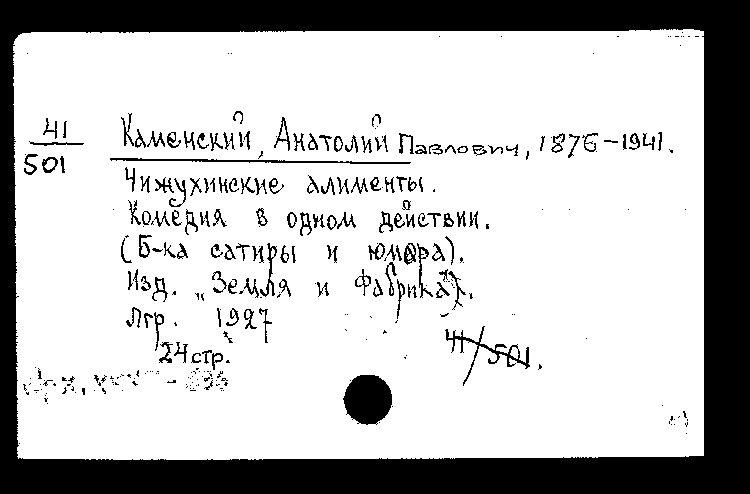 41
501
Каменский, Анатолий Павлович, 1876-1941.
Чижухинские алименты.
Комедия в одном действии.
(Б-ка сатиры и юмора).
Изд. „Земля и Фабрика".
Лгр. 1927
24 стр.
41/501.